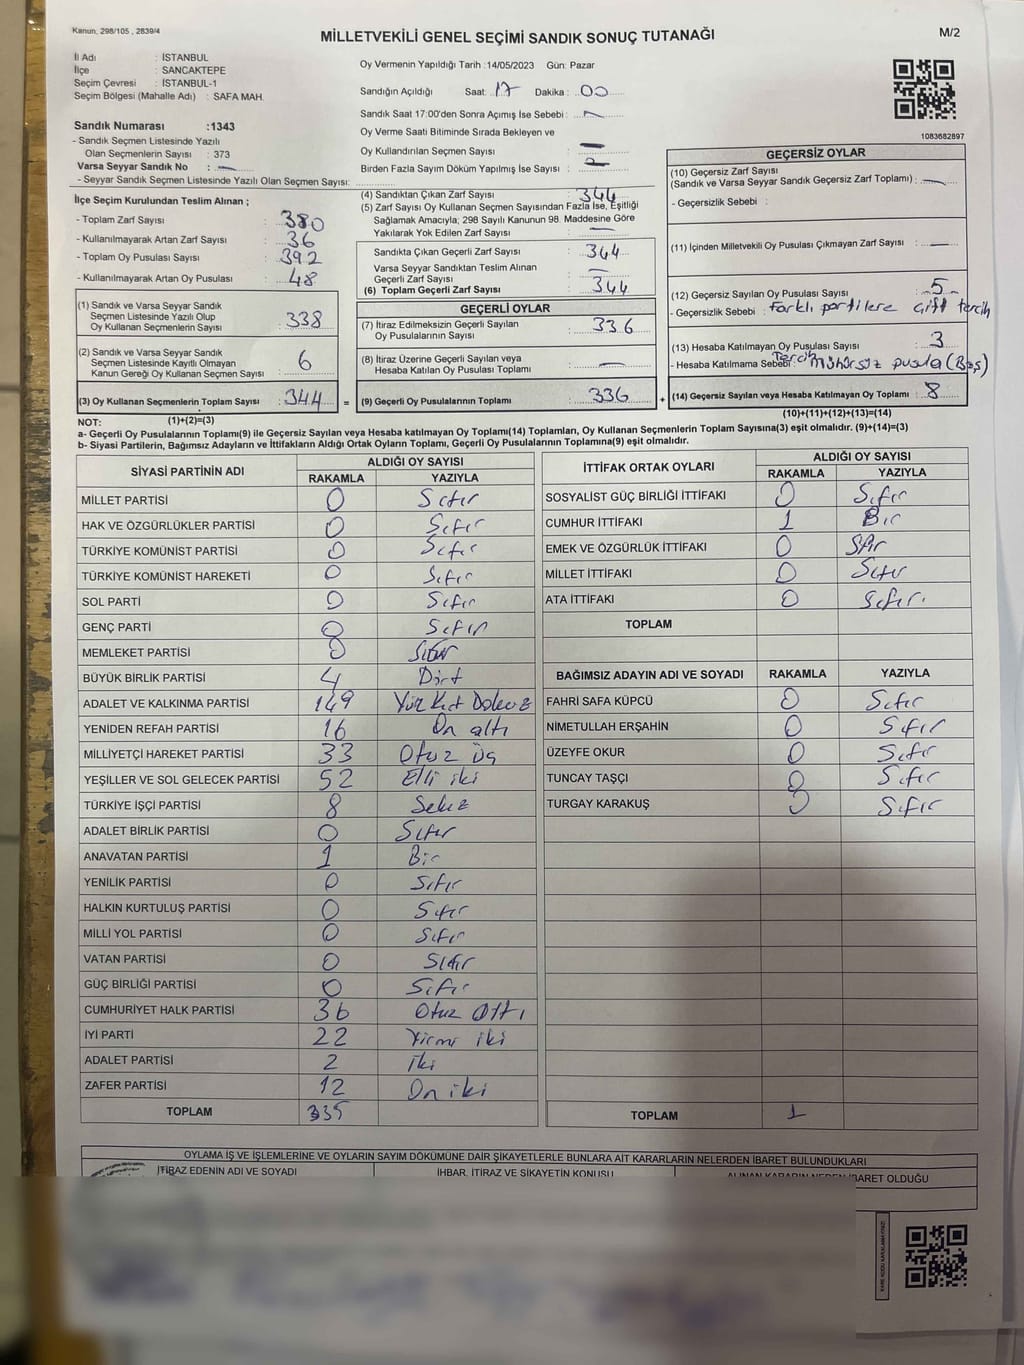 Kanun, 298/105 , 2839/4
MİLLETVEKİLİ GENEL SEÇİMİ SANDIK SONUÇ TUTANAĞI
M/2
İl Adı : İSTANBUL
İlçe : SANCAKTEPE
Seçim Çevresi : İSTANBUL-1
Seçim Bölgesi (Mahalle Adı) : SAFA MAH.
Sandık Numarası :1343
- Sandık Seçmen Listesinde Yazılı
Olan Seçmenlerin Sayısı : 373
Varsa Seyyar Sandık No : —
- Seyyar Sandık Seçmen Listesinde Yazılı Olan Seçmen Sayısı:
İlçe Seçim Kurulundan Teslim Alınan ;
- Toplam Zarf Sayısı : 380
- Kullanılmayarak Artan Zarf Sayısı : 36
- Toplam Oy Pusulası Sayısı : 392
- Kullanılmayarak Artan Oy Pusulası : 48
(1) Sandık ve Varsa Seyyar Sandık
Seçmen Listesinde Yazılı Olup
Oy Kullanan Seçmenlerin Sayısı : 338
(2) Sandık ve Varsa Seyyar Sandık
Seçmen Listesinde Kayıtlı Olmayan
Kanun Gereği Oy Kullanan Seçmen Sayısı : 6
(3) Oy Kullanan Seçmenlerin Toplam Sayısı : 344 =
Oy Vermenin Yapıldığı Tarih :14/05/2023 Gün: Pazar
Sandığın Açıldığı Saat: 17 Dakika : 00
Sandık Saat 17:00'den Sonra Açımış İse Sebebi : —
Oy Verme Saati Bitiminde Sırada Bekleyen ve
Oy Kullandırılan Seçmen Sayısı : —
Birden Fazla Sayım Döküm Yapılmış İse Sayısı :
(4) Sandıktan Çıkan Zarf Sayısı : 344
(5) Zarf Sayısı Oy Kullanan Seçmen Sayısından Fazla İse, Eşitliği
Sağlamak Amacıyla; 298 Sayılı Kanunun 98. Maddesine Göre
Yakılarak Yok Edilen Zarf Sayısı : —
Sandıkta Çıkan Geçerli Zarf Sayısı : 344
Varsa Seyyar Sandıktan Teslim Alınan
Geçerli Zarf Sayısı : —
(6) Toplam Geçerli Zarf Sayısı : 344
GEÇERLİ OYLAR
(7) İtiraz Edilmeksizin Geçerli Sayılan
Oy Pusulalarının Sayısı : 336
(8) İtiraz Üzerine Geçerli Sayılan veya
Hesaba Katılan Oy Pusulası Toplamı : —
(9) Geçerli Oy Pusulalarının Toplamı : 336 +
1083682897
GEÇERSİZ OYLAR
(10) Geçersiz Zarf Sayısı
(Sandık ve Varsa Seyyar Sandık Geçersiz Zarf Toplamı) : —
- Geçersizlik Sebebi :
(11) İçinden Milletvekili Oy Pusulası Çıkmayan Zarf Sayısı : —
(12) Geçersiz Sayılan Oy Pusulası Sayısı : 5
- Geçersizlik Sebebi : Farklı partilere çift tercih
(13) Hesaba Katılmayan Oy Pusulası Sayısı : 3
- Hesaba Katılmama Sebebi : Tercih mühürsüz pusula (Boş)
(14) Geçersiz Sayılan veya Hesaba Katılmayan Oy Toplamı : 8
NOT: (1)+(2)=(3) (10)+(11)+(12)+(13)=(14)
a- Geçerli Oy Pusulalarının Toplamı(9) ile Geçersiz Sayılan veya Hesaba katılmayan Oy Toplamı(14) Toplamları, Oy Kullanan Seçmenlerin Toplam Sayısına(3) eşit olmalıdır. (9)+(14)=(3)
b- Siyasi Partilerin, Bağımsız Adayların ve İttifakların Aldığı Ortak Oyların Toplamı, Geçerli Oy Pusulalarının Toplamına(9) eşit olmalıdır.
SİYASİ PARTİNİN ADI ALDIĞI OY SAYISI
RAKAMLA YAZIYLA
MİLLET PARTİSİ 0 Sıfır
HAK VE ÖZGÜRLÜKLER PARTİSİ 0 Sıfır
TÜRKİYE KOMÜNİST PARTİSİ 0 Sıfır
TÜRKİYE KOMÜNİST HAREKETİ 0 Sıfır
SOL PARTİ 0 Sıfır
GENÇ PARTİ 0 Sıfır
MEMLEKET PARTİSİ 0 Sıfır
BÜYÜK BİRLİK PARTİSİ 4 Dört
ADALET VE KALKINMA PARTİSİ 149 Yüz Kırk Dokuz
YENİDEN REFAH PARTİSİ 16 On altı
MİLLİYETÇİ HAREKET PARTİSİ 33 Otuz üç
YEŞİLLER VE SOL GELECEK PARTİSİ 52 Elli iki
TÜRKİYE İŞÇİ PARTİSİ 8 Sekiz
ADALET BİRLİK PARTİSİ 0 Sıfır
ANAVATAN PARTİSİ 1 Bir
YENİLİK PARTİSİ 0 Sıfır
HALKIN KURTULUŞ PARTİSİ 0 Sıfır
MİLLİ YOL PARTİSİ 0 Sıfır
VATAN PARTİSİ 0 Sıfır
GÜÇ BİRLİĞİ PARTİSİ 0 Sıfır
CUMHURİYET HALK PARTİSİ 36 Otuz Altı
İYİ PARTİ 22 Yirmi iki
ADALET PARTİSİ 2 İki
ZAFER PARTİSİ 12 On iki
TOPLAM 335
İTTİFAK ORTAK OYLARI ALDIĞI OY SAYISI
RAKAMLA YAZIYLA
SOSYALİST GÜÇ BİRLİĞİ İTTİFAKI 0 Sıfır
CUMHUR İTTİFAKI 1 Bir
EMEK VE ÖZGÜRLÜK İTTİFAKI 0 Sıfır
MİLLET İTTİFAKI 0 Sıfır
ATA İTTİFAKI 0 Sıfır
TOPLAM
BAĞIMSIZ ADAYIN ADI VE SOYADI RAKAMLA YAZIYLA
FAHRİ SAFA KÜPCÜ 0 Sıfır
NİMETULLAH ERŞAHİN 0 Sıfır
ÜZEYFE OKUR 0 Sıfır
TUNCAY TAŞÇI 0 Sıfır
TURGAY KARAKUŞ 0 Sıfır
TOPLAM 1
OYLAMA İŞ VE İŞLEMLERİNE VE OYLARIN SAYIM DÖKÜMÜNE DAİR ŞİKAYETLERLE BUNLARA AİT KARARLARIN NELERDEN İBARET BULUNDUKLARI
İTİRAZ EDENİN ADI VE SOYADI İHBAR, İTİRAZ VE ŞİKAYETİN KONUSU ALINAN KARARIN NEDEN İBARET OLDUĞU